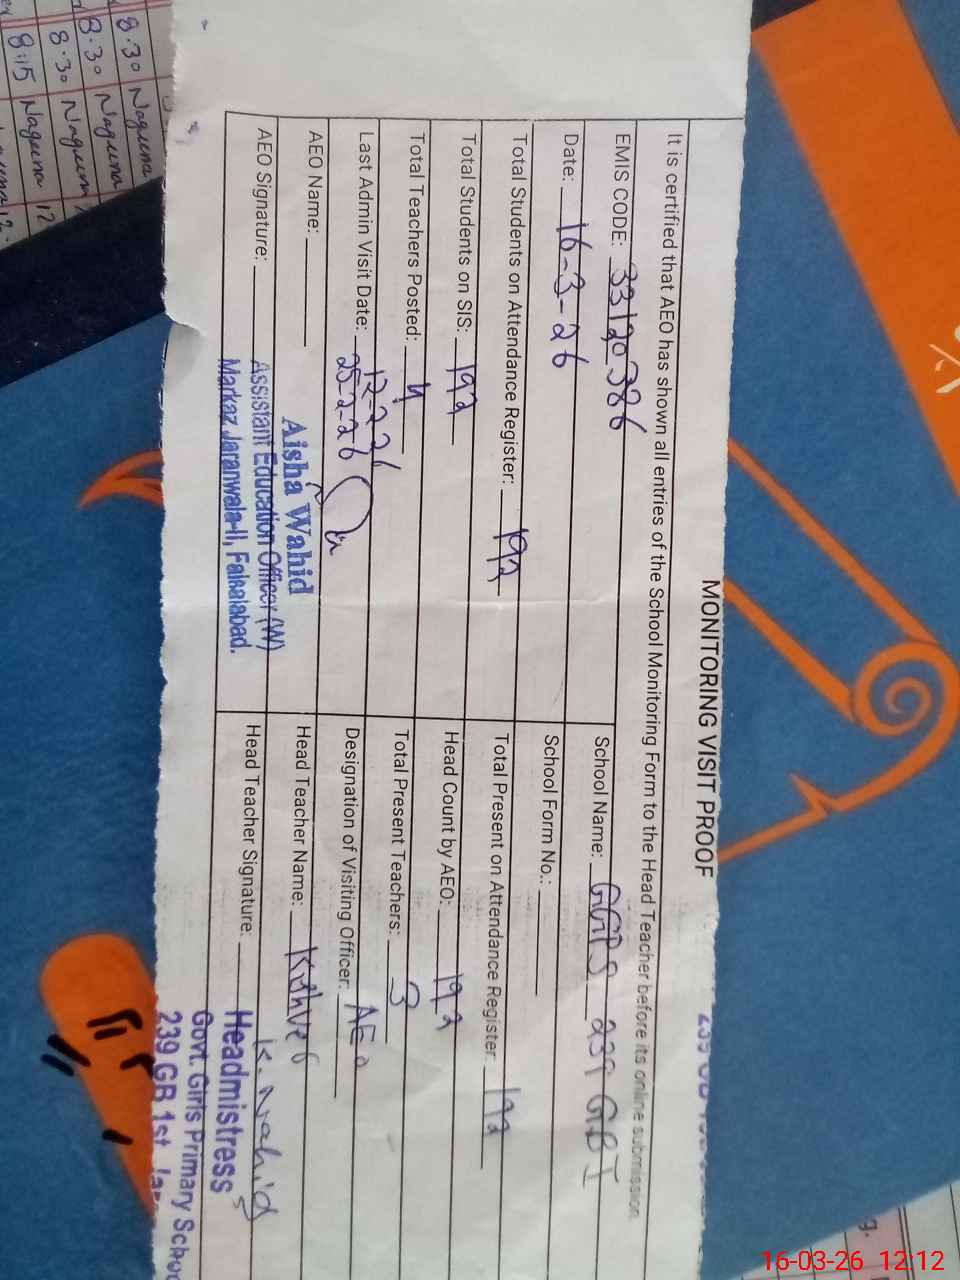 MONITORING VISIT PROOF
It is certified that AEO has shown all entries of the School Monitoring Form to the Head Teacher before its online submission.
EMIS CODE: 33120386
School Name: GGPS 239 GB I
Date: 16-3-26
School Form No.:
Total Students on Attendance Register: 192
Total Present on Attendance Register: 192
Total Students on SIS: 192
Head Count by AEO: 192
Total Teachers Posted: 4
Total Present Teachers: 3
Last Admin Visit Date: 12-2-26
25-2-26
Designation of Visiting Officer: AEO
AEO Name:
Aisha Wahid
Head Teacher Name:
AEO Signature:
Assistant Education Officer (W)
Markaz Jaranwala-II, Faisalabad.
Head Teacher Signature: K. Nahid
Headmistress
Govt. Girls Primary School
239 GB 1st
8.30 Nageena
8.30 Nageena
8.30 Nageena
8:15 Nageena
16-03-26 12:12